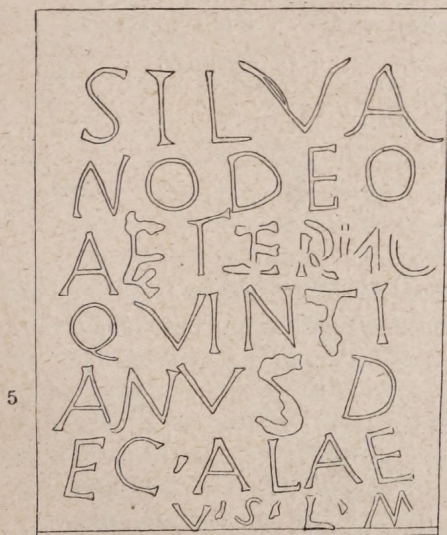 SILVA
NODEO
AETERNO
QVINTI
5 ANVS D
EC'ALAE
V'S'L'M